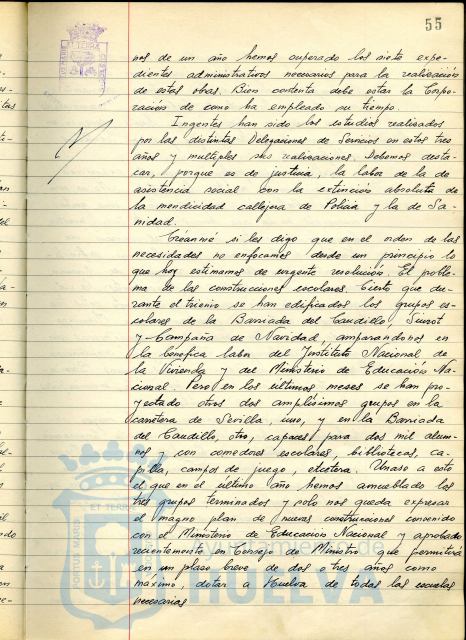 55
nos de un año hemos superado los siete expe-
dientes administrativos necesarios para la realización
de estas obras. Bien contenta debe estar la Corpo-
ración de como ha empleado su tiempo.
Ingentes han sido los estudios realizados
por las distintas Delegaciones de Servicios en estos tres
años y multiples sus realizaciones. Debemos desta-
car, porque es de justicia, la labor de la de
asistencia social con la extinción absoluta de
la mendicidad callejera de Policia y la de Sa-
nidad.
Créanme si les digo que en el orden de las
necesidades no enfocamos desde un principio lo
que hoy estimamos de urgente resolución. El proble-
ma de las construcciones escolares. Cierto que du-
rante el trienio se han edificados los grupos es-
colares de la Barriada del Caudillo, Siurot
y Campaña de Navidad amparandonos en
la benefica labor del Instituto Nacional de
la Vivienda y del Ministerio de Educación Na-
cional. Pero en los ultimos meses se han pro-
yectado otros dos amplísimos grupos en la
carretera de Sevilla, uno, y en la Barriada
del Caudillo, otro, capaces para dos mil alum-
nos, con comedores escolares, bibliotecas, ca-
pilla, campos de juego, etcetera. Unase a esto
el que en el último año hemos amueblado los
tres grupos terminados y solo nos queda expresar
el magno plan de nuevas construcciones convenido
con el Ministerio de Educación Nacional y aprobado
recientemente en Consejo de Ministro que permitirá
en un plazo breve de dos o tres años como
maximo, dotar a Huelva de todas las escuelas
necesarias
ET TERRE
PORTUS MARIS
Ayuntamiento de
HUELVA